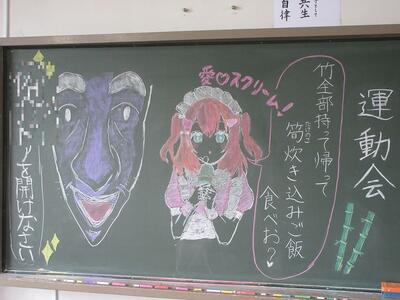 共生
自律
運動会
竹全部持って帰って
筍炊き込みご飯
たけのこ
食べお？
愛♡スクリーム！
を開けなさい